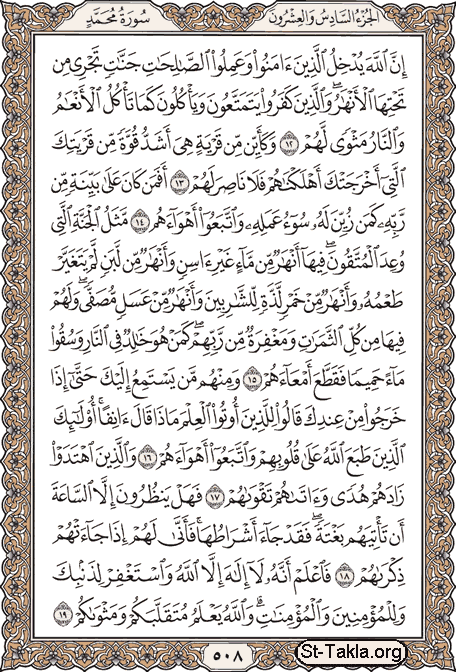 سُورَةُ مُحَمَّدٍ
الجُزءُ السَّادِسُ وَالعِشْرُونَ
إِنَّ ٱللَّهَ يُدْخِلُ ٱلَّذِينَ ءَامَنُوا۟ وَعَمِلُوا۟ ٱلصَّٰلِحَٰتِ جَنَّٰتٍ تَجْرِى مِن
تَحْتِهَا ٱلْأَنْهَٰرُ ۖ وَٱلَّذِينَ كَفَرُوا۟ يَتَمَتَّعُونَ وَيَأْكُلُونَ كَمَا تَأْكُلُ ٱلْأَنْعَٰمُ
وَٱلنَّارُ مَثْوًى لَّهُمْ ١٢ وَكَأَيِّن مِّن قَرْيَةٍ هِىَ أَشَدُّ قُوَّةً مِّن قَرْيَتِكَ
ٱلَّتِىٓ أَخْرَجَتْكَ أَهْلَكْنَٰهُمْ فَلَا نَاصِرَ لَهُمْ ١٣ أَفَمَن كَانَ عَلَىٰ بَيِّنَةٍ مِّن
رَّبِّهِۦ كَمَن زُيِّنَ لَهُۥ سُوٓءُ عَمَلِهِۦ وَٱتَّبَعُوٓا۟ أَهْوَآءَهُم ١٤ مَّثَلُ ٱلْجَنَّةِ ٱلَّتِى
وُعِدَ ٱلْمُتَّقُونَ ۖ فِيهَآ أَنْهَٰرٌ مِّن مَّآءٍ غَيْرِ ءَاسِنٍ وَأَنْهَٰرٌ مِّن لَّبَنٍ لَّمْ يَتَغَيَّرْ
طَعْمُهُۥ وَأَنْهَٰرٌ مِّنْ خَمْرٍ لَّذَّةٍ لِّلشَّٰرِبِينَ وَأَنْهَٰرٌ مِّنْ عَسَلٍ مُّصَفًّى ۖ وَلَهُمْ
فِيهَا مِن كُلِّ ٱلثَّمَرَٰتِ وَمَغْفِرَةٌ مِّن رَّبِّهِمْ ۖ كَمَنْ هُوَ خَٰلِدٌ فِى ٱلنَّارِ وَسُقُوا۟
مَآءً حَمِيمًا فَقَطَّعَ أَمْعَآءَهُمْ ١٥ وَمِنْهُم مَّن يَسْتَمِعُ إِلَيْكَ حَتَّىٰٓ إِذَا
خَرَجُوا۟ مِنْ عِندِكَ قَالُوا۟ لِلَّذِينَ أُوتُوا۟ ٱلْعِلْمَ مَاذَا قَالَ ءَانِفًا ۚ أُو۟لَٰٓئِكَ
ٱلَّذِينَ طَبَعَ ٱللَّهُ عَلَىٰ قُلُوبِهِمْ وَٱتَّبَعُوٓا۟ أَهْوَآءَهُمْ ١٦ وَٱلَّذِينَ ٱهْتَدَوْا۟
زَادَهُمْ هُدًى وَءَاتَىٰهُمْ تَقْوَىٰهُمْ ١٧ فَهَلْ يَنظُرُونَ إِلَّا ٱلسَّاعَةَ
أَن تَأْتِيَهُم بَغْتَةً ۖ فَقَدْ جَآءَ أَشْرَاطُهَا ۚ فَأَنَّىٰ لَهُمْ إِذَا جَآءَتْهُمْ
ذِكْرَىٰهُمْ ١٨ فَٱعْلَمْ أَنَّهُۥ لَآ إِلَٰهَ إِلَّا ٱللَّهُ وَٱسْتَغْفِرْ لِذَنۢبِكَ
وَلِلْمُؤْمِنِينَ وَٱلْمُؤْمِنَٰتِ ۗ وَٱللَّهُ يَعْلَمُ مُتَقَلَّبَكُمْ وَمَثْوَىٰكُمْ ١٩
٥٠٨
St-Takla.org